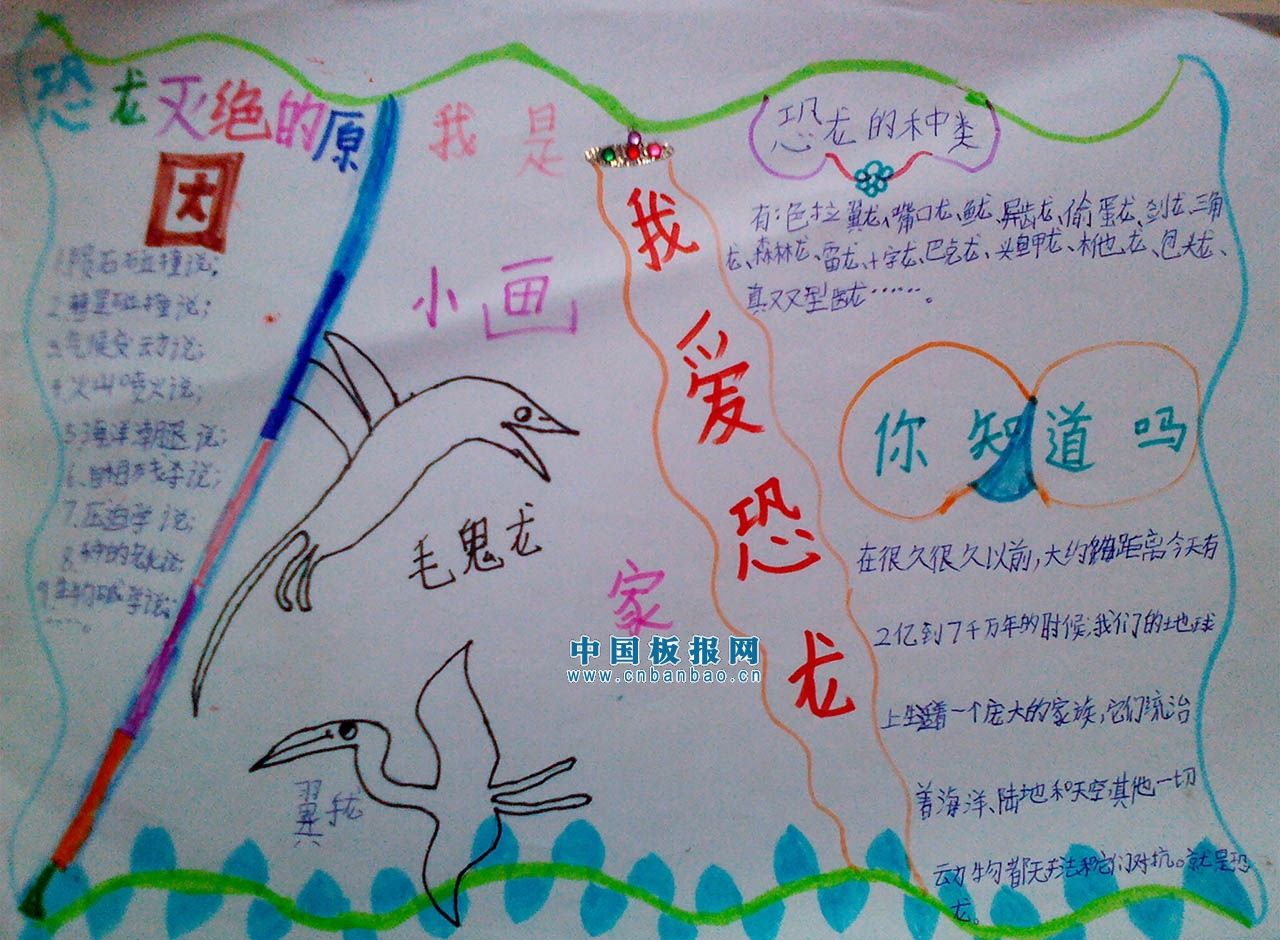 恐龙灭绝的原
因
1.陨石碰撞说;
2.彗星碰撞说;
3.气候变动说;
4.火山喷火说;
5.海洋潮退说;
6.自相残杀说;
7.压迫学说;
8.种的老化说;
9.生物碱学说;
……。
我是
小画
家
毛鬼龙
翼手龙
我爱恐龙
恐龙的种类
有:色拉翼龙、嘴口龙、鱼龙、异齿龙、偷蛋龙、剑龙、三角
龙、森林龙、雷龙、十字龙、巴克龙、头甲龙、木他龙、包头龙、
真双型齿龙……。
你知道吗
在很久很久以前,大约距离今天有
2亿到7千万年的时候,我们的地球
上生活着一个庞大的家族,它们统治
着海洋、陆地和天空,其他一切
动物都无法和它们对抗。就是恐
龙。
中国板报网
www.cnbanbao.cn